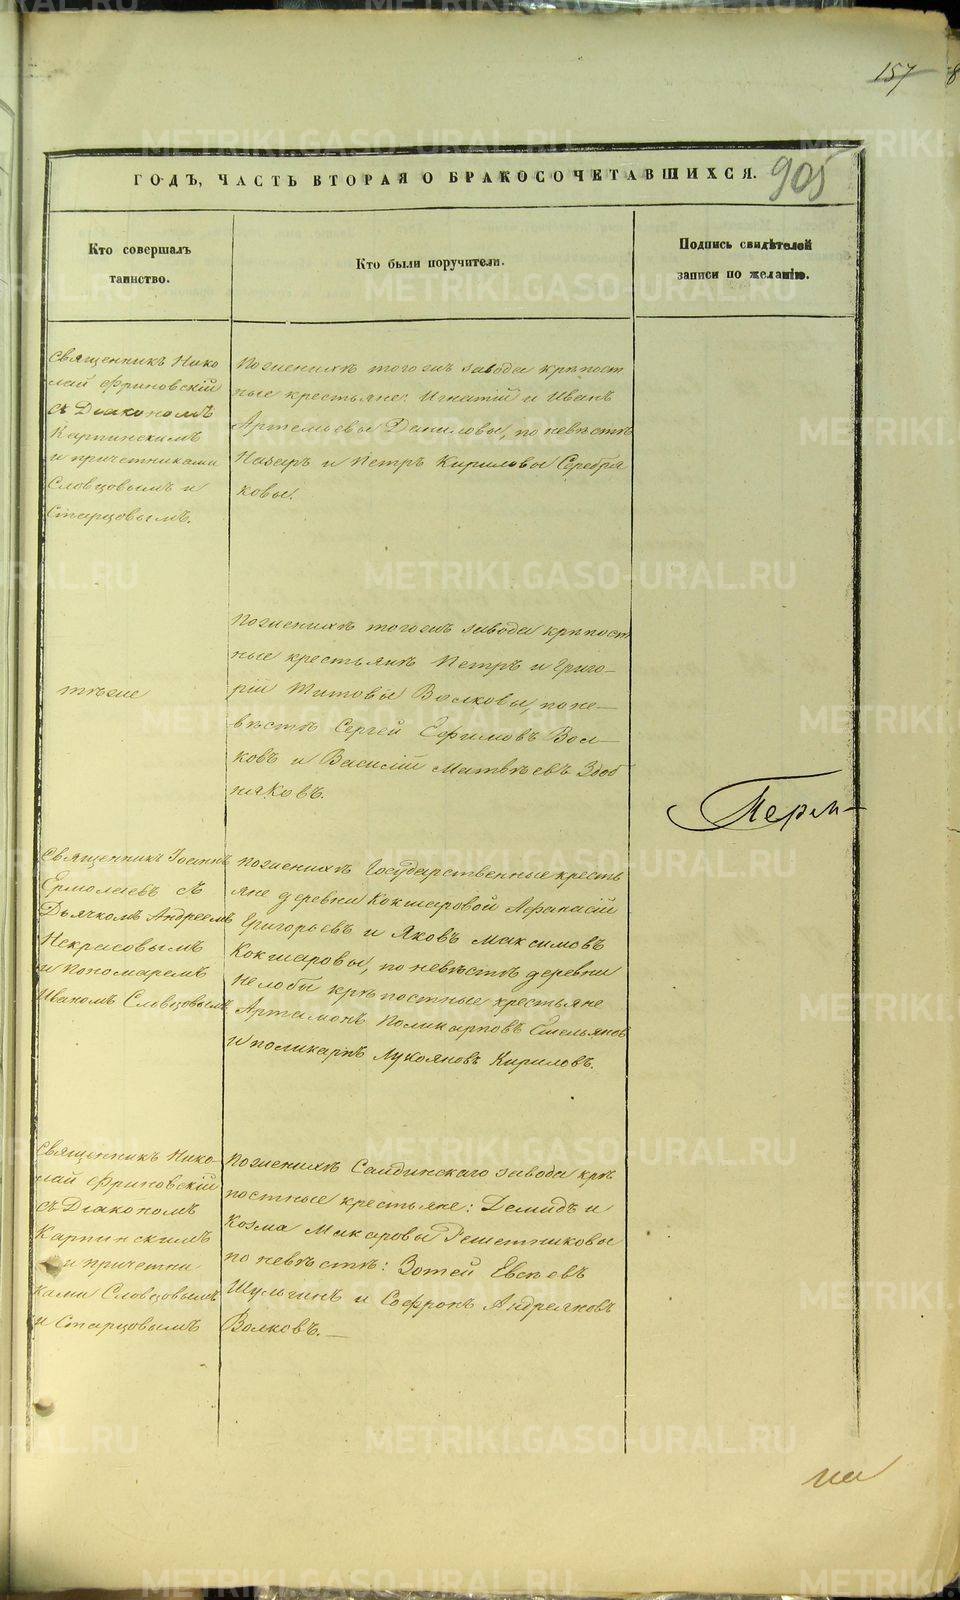 157
905
ГОДЪ, ЧАСТЬ ВТОРАЯ О БРАКОСОЧЕТАВШИХСЯ.
Кто совершалъ
таинство.
Кто были поручители.
Подпись свидѣтелей
записи по желанію.
Священникъ Нико
лай Фриновскій
съ Діакономъ
Карпинскимъ
и причетниками
Словцовымъ и
Старцовымъ.
По женихѣ тогожъ завода крѣпост
ные крестьяне: Игнатій и Иванъ
Артемьевы Даниловы, по невѣстѣ
Назаръ и Петръ Кириловы Серебря
ковы.
тѣже
По женихѣ тогожъ завода крѣпост
ные крестьянѣ Петръ и Григо-
рій Титовы Волковы, по не-
вѣстѣ Сергей Ефимовъ Вол-
ковъ и Василій Матвѣевъ Здоб
няковъ.
Священникъ Іоаннъ
Ермолаевъ съ
Дьячкомъ Андреемъ
Некрасовымъ
и Пономаремъ
Иваномъ Словцовымъ
По женихѣ Государственные кресть
яне деревни Кокшаровой Афанасій
Григорьевъ и Яковъ Максимовъ
Кокшаровы, по невѣстѣ деревни
Нелобы крѣпостные крестьяне
Артамонъ Поликарповъ Емельяновъ
и Поликарпъ Лукояновъ Кириловъ.
Перм-
Священникъ Нико-
лай Фриновскій
съ Діакономъ
Карпинскимъ
и причетни
ками Словцовымъ
и Старцовымъ
По женихѣ Салдинскаго завода крѣ
постные крестьяне: Демидъ и
Козма Макаровы Решетниковы
по невѣстѣ: Зотей Евсѣевъ
Шульгинъ и Софронъ Андреяновъ
Волковъ.
METRIKI.GASO-URAL.RU